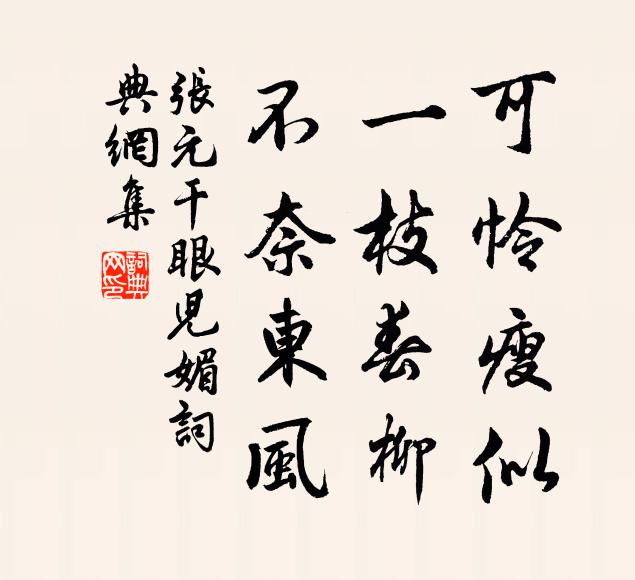 可怜瘦似
一枝春柳
不奈東風
張元干眼児媚詞
典網集
詞典网印